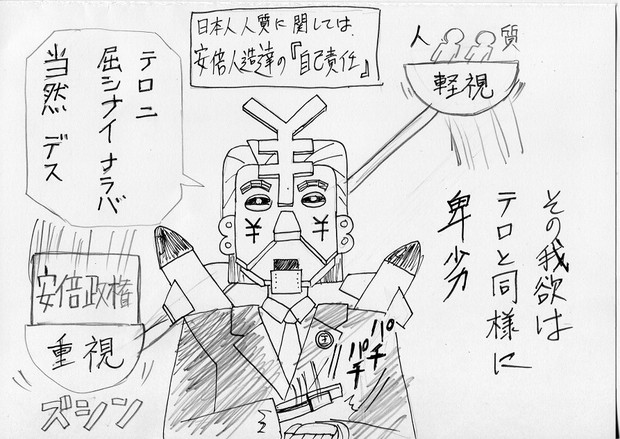 日本人人質に関しては、
安倍人造達の『自己責任』
人質
軽視
テロニ
屈シナイナラバ
当然デス
その我欲は
テロと同様に
卑劣
安倍政権
重視
ズシン
¥
¥
¥
パチ
パチ